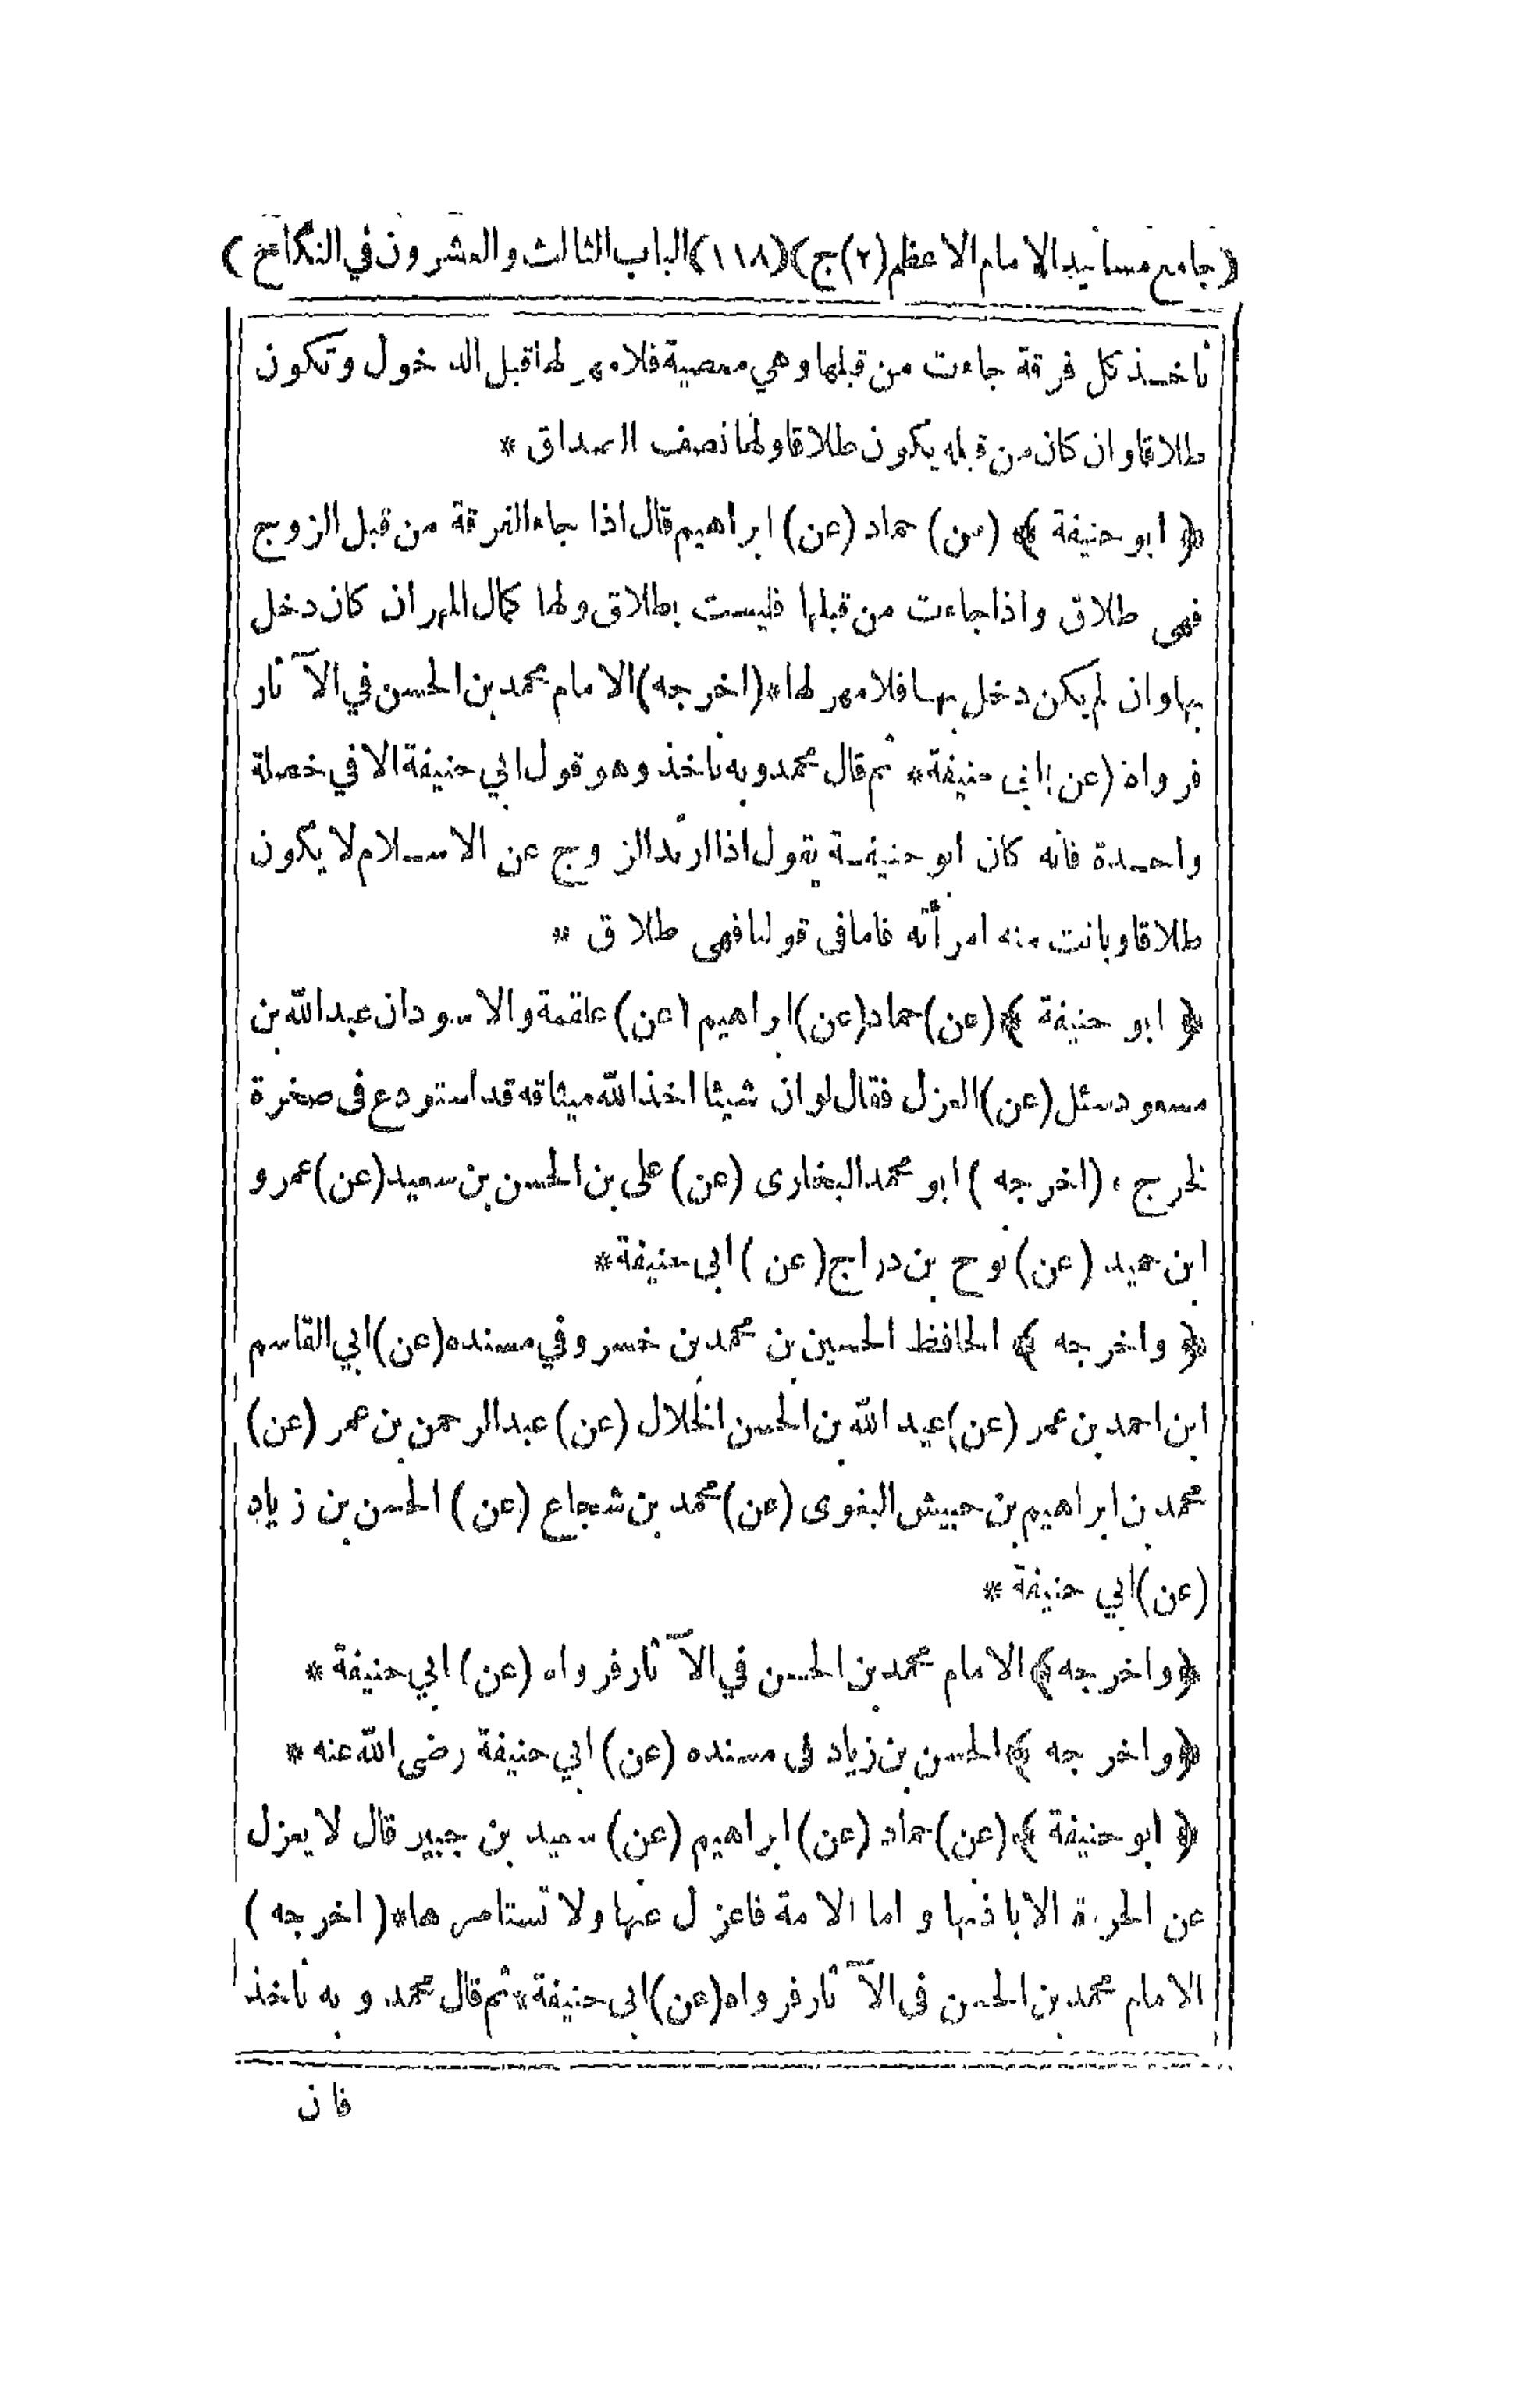 (جامع مسانيد الامام الاعظم (٢) ج) (١١٨) الباب الثالث والعشرون في النكاح)
نأخذ كل فرقة جاءت من قبلها وهي معصية فلا مهر لها قبل الدخول وتكون
طلاقا وان كان من قبله يكون طلاقا ولها نصف الصداق *
﴿ ابو حنيفة ﴾ (عن) حماد (عن) ابراهيم قال اذا جاء الفرقة من قبل الزوج
فهي طلاق واذا جاءت من قبلها فليست بطلاق ولها كمال المهر ان كان دخل
بها وان لم يكن دخل بها فلا مهر لها * (اخرجه) الامام محمد بن الحسن في الآثار
فرواه (عن) ابي حنيفة * ثم قال محمد وبه نأخذ وهو قول ابي حنيفة الا في خصلة
واحدة فانه كان ابو حنيفة يقول اذا ارتد الزوج عن الاسلام لا يكون
طلاقا وبانت منه امرأته فاما في قولنا فهي طلاق *
﴿ ابو حنيفة ﴾ (عن) حماد (عن) ابراهيم (عن) علقمة والاسود ان عبد الله بن
مسعود سئل (عن) العزل فقال لو ان شيئا اخذ الله ميثاقه قد استودع في صخرة
لخرج * (اخرجه) ابو محمد البخارى (عن) على بن الحسن بن سعيد (عن) عمرو
ابن حميد (عن) نوح بن دراج (عن) ابى حنيفة *
﴿ واخرجه ﴾ الحافظ الحسين بن محمد بن خسرو في مسنده (عن) ابي القاسم
ابن احمد بن عمر (عن) عبد الله بن الحسن الخلال (عن) عبد الرحمن بن عمر (عن)
محمد بن ابراهيم بن حبيش البغوى (عن) محمد بن شجاع (عن) الحسن بن زياد
(عن) ابي حنيفة *
﴿ واخرجه ﴾ الامام محمد بن الحسن في الآثار فرواه (عن) ابي حنيفة *
﴿ واخرجه ﴾ الحسن بن زياد فى مسنده (عن) ابي حنيفة رضى الله عنه *
﴿ ابو حنيفة ﴾ (عن) حماد (عن) ابراهيم (عن) سعيد بن جبير قال لا يعزل
عن الحرة الا باذنها و اما الامة فاعزل عنها ولا تستامرها * (اخرجه)
الامام محمد بن الحسن فى الآثار فرواه (عن) ابى حنيفة * ثم قال محمد و به نأخذ
فان